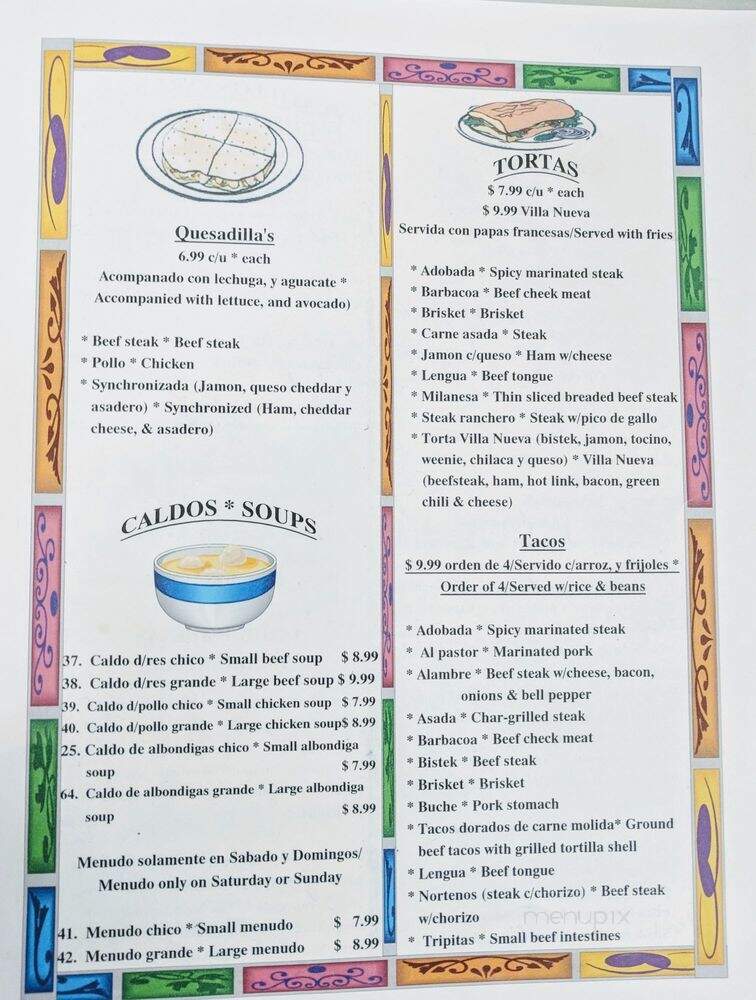 Quesadilla's
6.99 c/u * each
Acompanado con lechuga, y aguacate *
Accompanied with lettuce, and avocado)
* Beef steak * Beef steak
* Pollo * Chicken
* Synchronizada (Jamon, queso cheddar y
asadero) * Synchronized (Ham, cheddar
cheese, & asadero)
CALDOS * SOUPS
37. Caldo d/res chico * Small beef soup $ 8.99
38. Caldo d/res grande * Large beef soup $ 9.99
39. Caldo d/pollo chico * Small chicken soup $ 7.99
40. Caldo d/pollo grande * Large chicken soup$ 8.99
25. Caldo de albondigas chico * Small albondiga
soup $ 7.99
64. Caldo de albondigas grande * Large albondiga
soup $ 8.99
Menudo solamente en Sabado y Domingos/
Menudo only on Saturday or Sunday
41. Menudo chico * Small menudo $ 7.99
42. Menudo grande * Large menudo $ 8.99
TORTAS
$ 7.99 c/u * each
$ 9.99 Villa Nueva
Servida con papas francesas/Served with fries
* Adobada * Spicy marinated steak
* Barbacoa * Beef cheek meat
* Brisket * Brisket
* Carne asada * Steak
* Jamon c/queso * Ham w/cheese
* Lengua * Beef tongue
* Milanesa * Thin sliced breaded beef steak
* Steak ranchero * Steak w/pico de gallo
* Torta Villa Nueva (bistek, jamon, tocino,
weenie, chilaca y queso) * Villa Nueva
(beefsteak, ham, hot link, bacon, green
chili & cheese)
Tacos
$ 9.99 orden de 4/Servido c/arroz, y frijoles *
Order of 4/Served w/rice & beans
* Adobada * Spicy marinated steak
* Al pastor * Marinated pork
* Alambre * Beef steak w/cheese, bacon,
onions & bell pepper
* Asada * Char-grilled steak
* Barbacoa * Beef check meat
* Bistek * Beef steak
* Brisket * Brisket
* Buche * Pork stomach
* Tacos dorados de carne molida* Ground
beef tacos with grilled tortilla shell
* Lengua * Beef tongue
* Nortenos (steak c/chorizo) * Beef steak
w/chorizo
* Tripitas * Small beef intestines
menupix